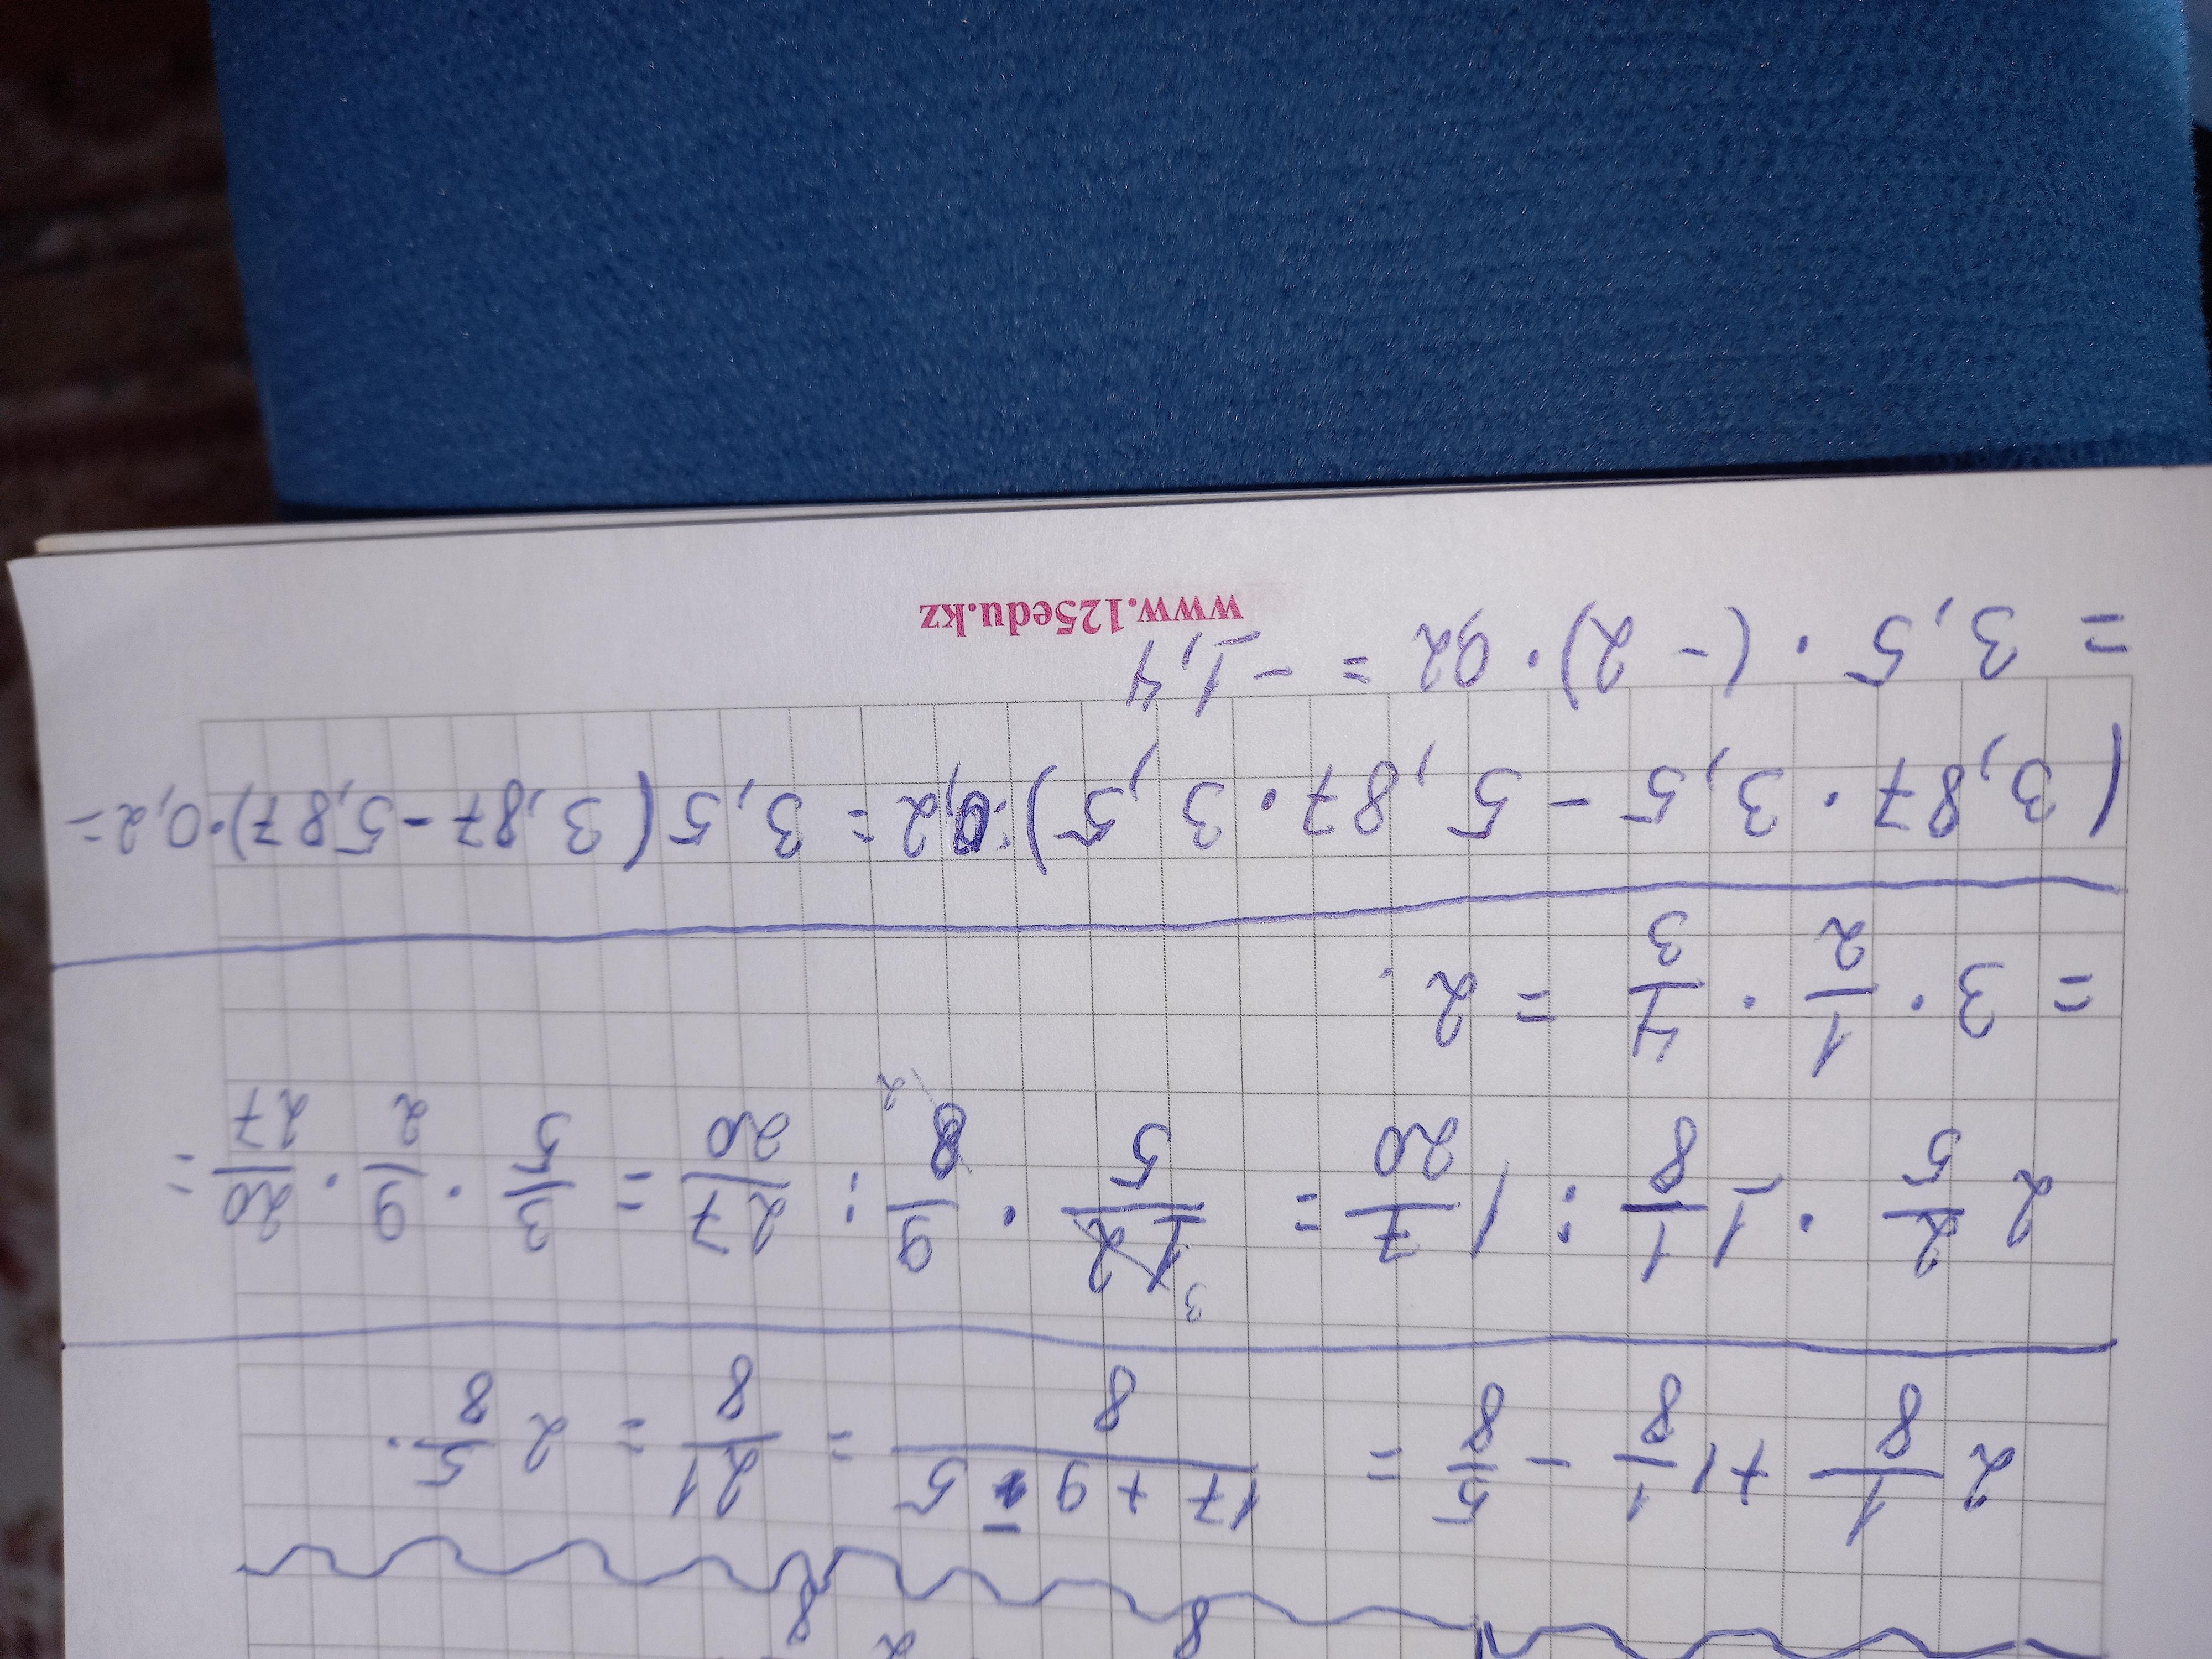 8 2 8
2 1/8 + 1 1/8 - 5/8 = (17 + 9 - 5)/8 = 21/8 = 2 5/8.
2 2/5 · 1 1/8 : 1 7/20 = 12/5 · 9/8 : 27/20 = 3/5 · 9/2 · 20/27 =
= 3 · 1/2 · 4/3 = 2.
(3,87 · 3,5 - 5,87 · 3,5) · 0,2 = 3,5 (3,87 - 5,87) · 0,2 =
= 3,5 · (-2) · 0,2 = -1,4
www.125edu.kz